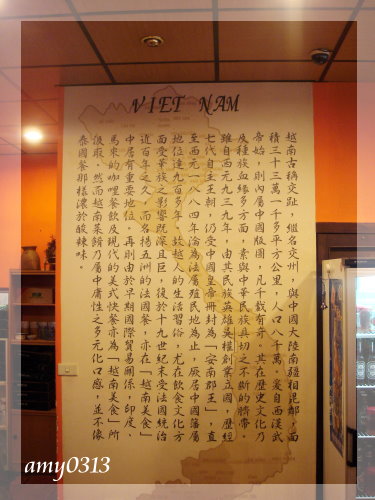 VIET NAM
越南古稱交趾，繼名交州，與中國大陸南疆相毘鄰，面
積三十三萬一千多平方公里，人口八千萬，爰自西漢武
帝始，則內屬中國版圖，凡千載有奇，其在歷史文化乃
及種族血緣多方面，素與中華民族具切之不斷的臍帶。
雖自西元九三九年，由其民族英雄吳權創業立國，歷經
七代自主王朝，仍受中國皇帝冊封為「安南郡王」，直
至西元一八八四年淪為法屬殖民地為止，居中國藩屬
地位達九百多年，故越人的生活習俗，尤在飲食文化方
面受華族之影響既深且巨，後於十九世紀末受法國統治
近百年之久，而名揚五洲的法國餐，亦在「越南美食」
中居有重要地位。再則由於早期國際貿易關係，印度、
馬來的咖哩餐飲及現代的美式快餐亦為「越南美食」所
汲取，然而越南菜餚乃屬中庸性之多元化口感，並不像
泰國餐那樣濃於酸辣味。
amy0313